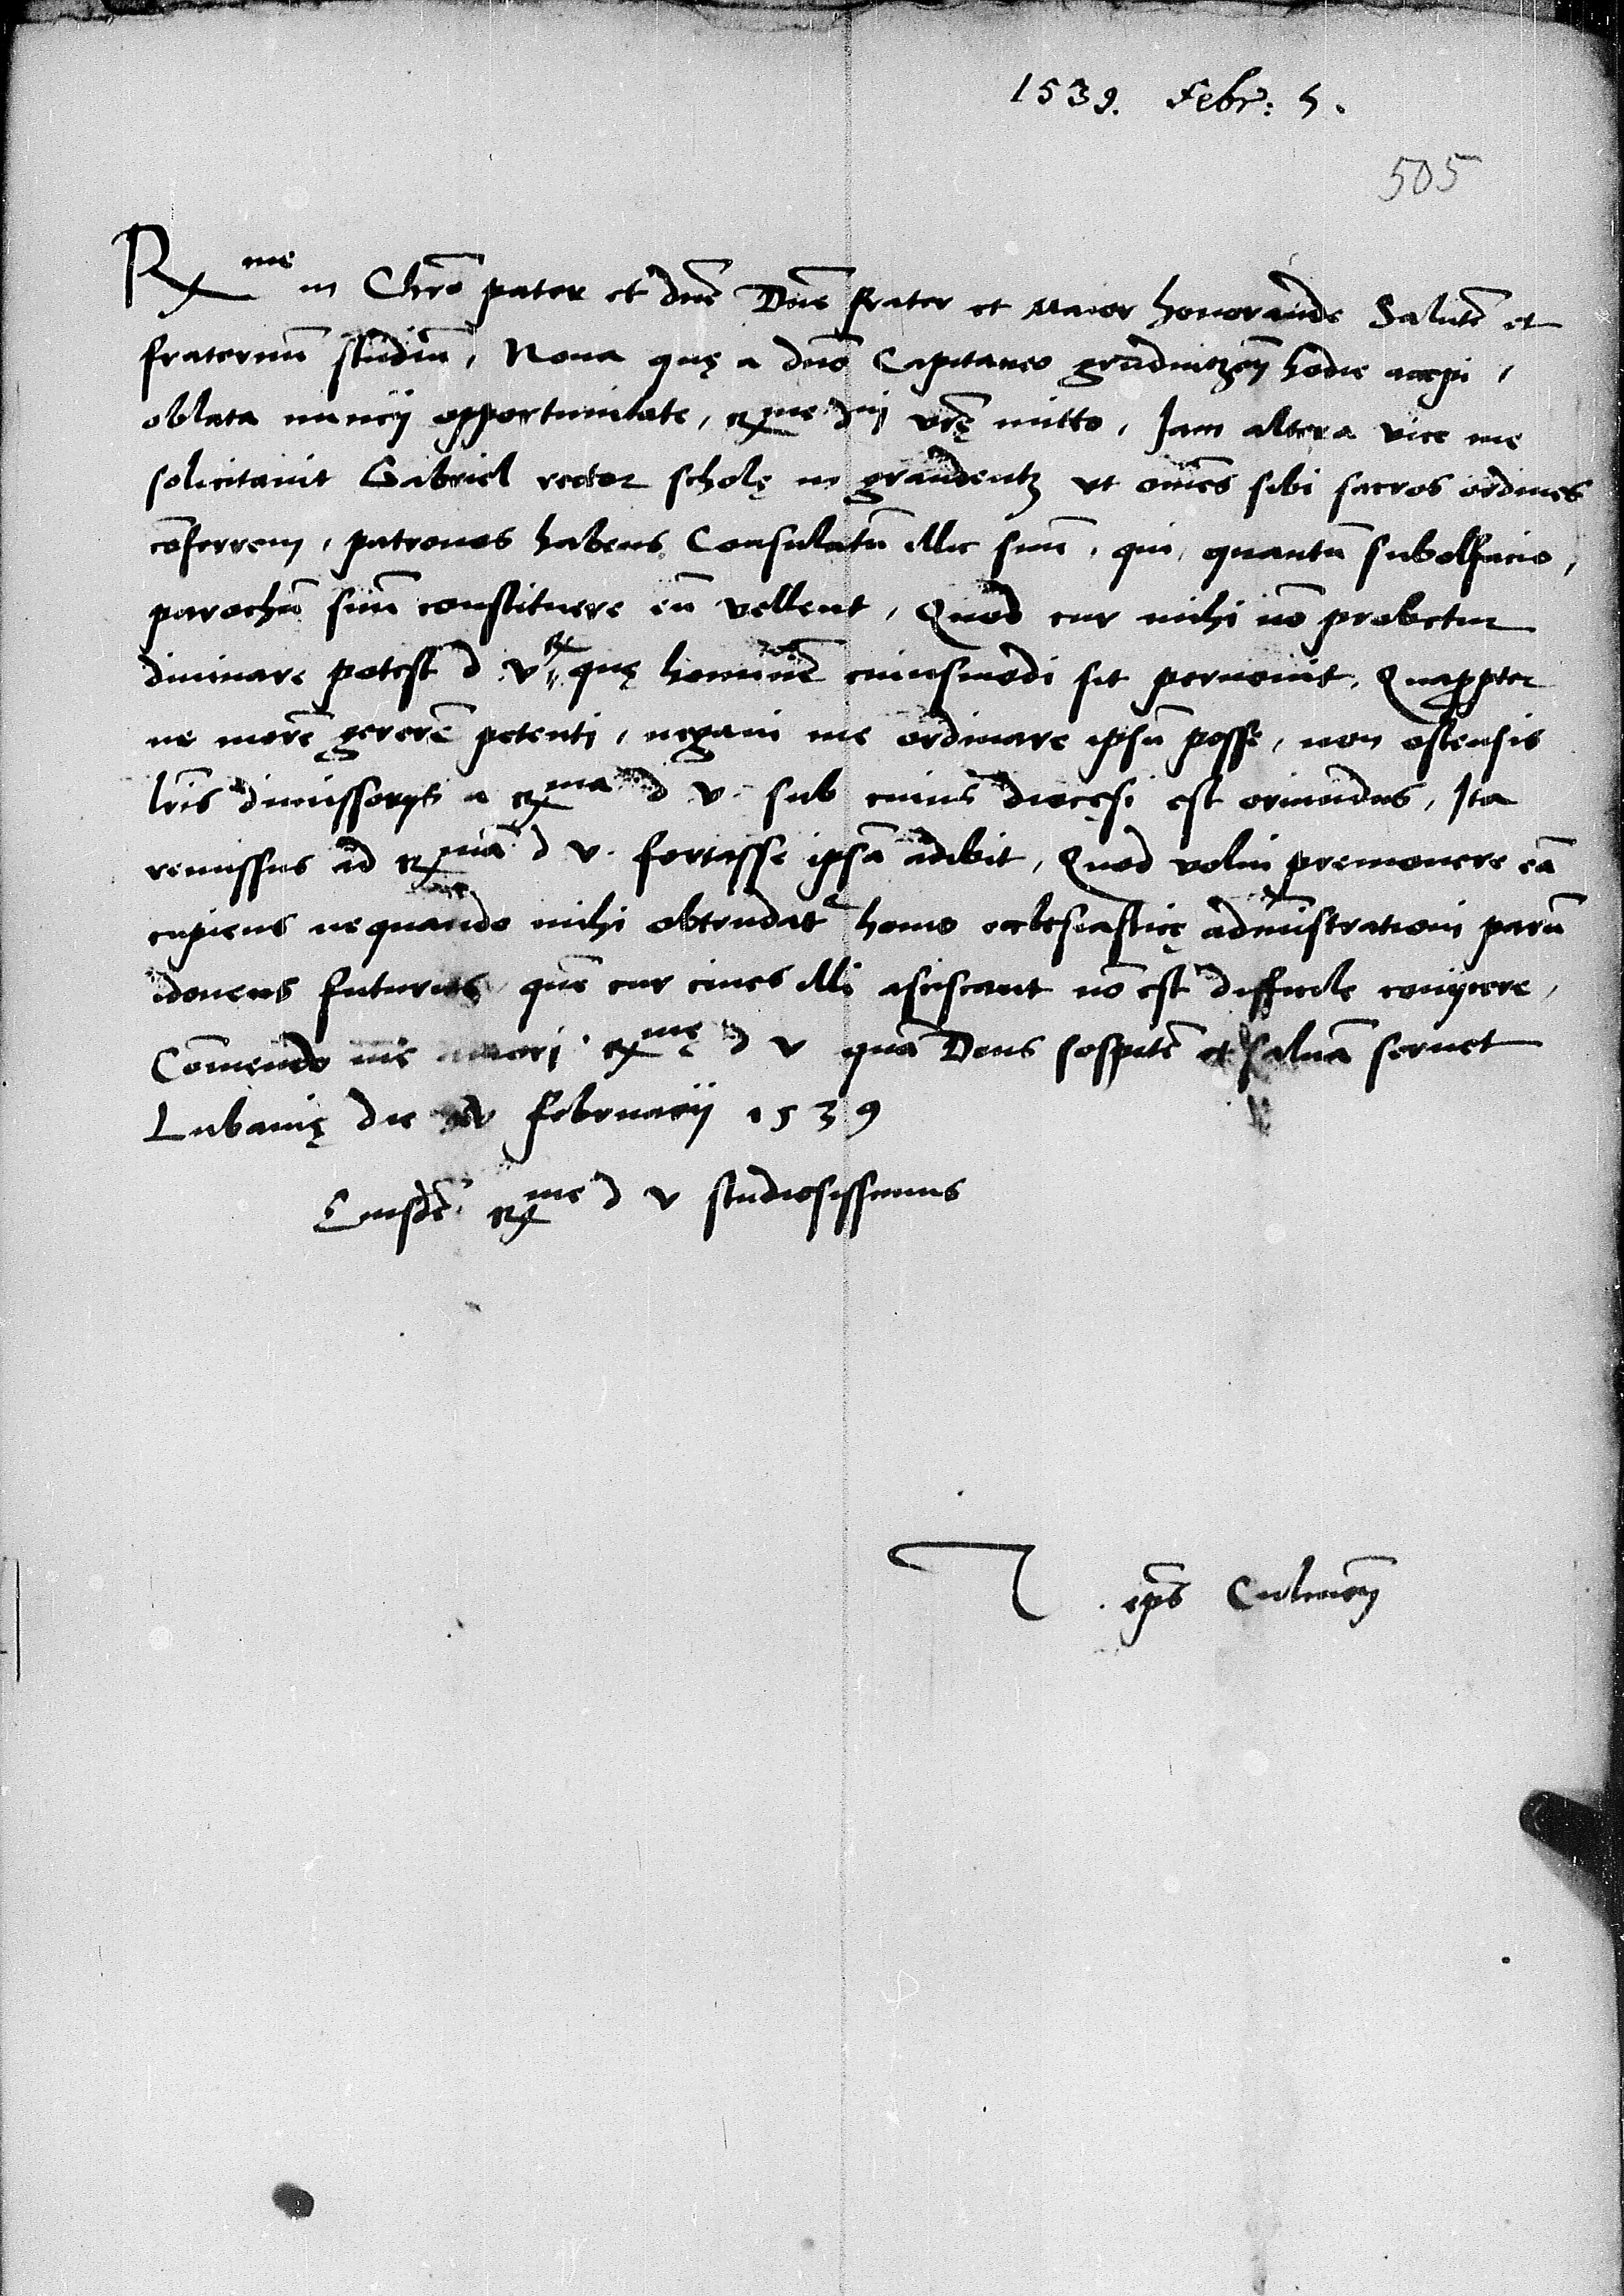 1539. Febr: 5.
505
Rx^me in Chrō pater et dnē Dnē frater et maior honorande Salutē et
fraternū studiū, Noua quę a dnō Capitaneo graudintzeñ hodie accepi,
oblata nuncij opportunitate, Rx^me dnj vrę mitto, Jam altera vice me
solicitauit Gabriel rector scholę in graudentz vt om̄es sibi sacros ordines
cōferrem, patronos habens Consulatū illic suū, qui, quantū subolfacio,
parochū suū constituere eū vellent, Quod cur mihi nō probetur
diuinare potest d v^Rx quę hominē cuiusmodi sit pernouit, Quappter
ne morē gererē petenti, negaui me ordinare ipsū posse, non ostensis
lrīs dimissorijs a Rx^ma d v. sub cuius diocęsi est oriundus, Ita
remissus ad Rx^mā d v. fortasse ipsā adibit, Quod volui premonere eā
cupiens ne quando mihi obtrudat^r homo ecclesiasticę administrationi parū
idoneus futurus quē cur ciues illi asciscant nō est difficile conijcere,
Cōmendo me amori Rx^mę d v quā Deus sospitē et saluā seruet
Lubauię die v februarij 1539
Eiusdē Rx^me d v studiosissimus
T. eps̄ Culmeñ